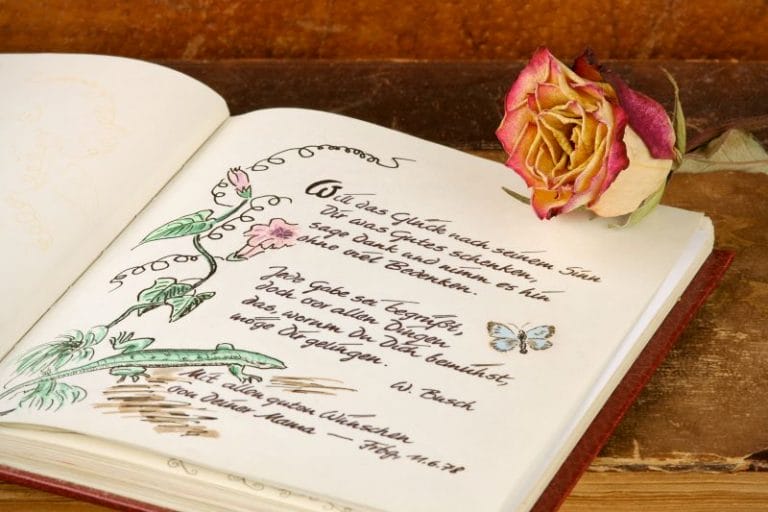 Will das Glück nach seinem Sinn
Dir was Gutes schenken,
sage Dank und nimm es hin
ohne viel Bedenken.
Jede Gabe sei begrüßt,
doch vor allen Dingen
die, worum Du Dich bemühst,
möge Dir gelingen.
W. Busch
Mit allen guten Wünschen
von Deiner Mama — Frbg. 11.6.78